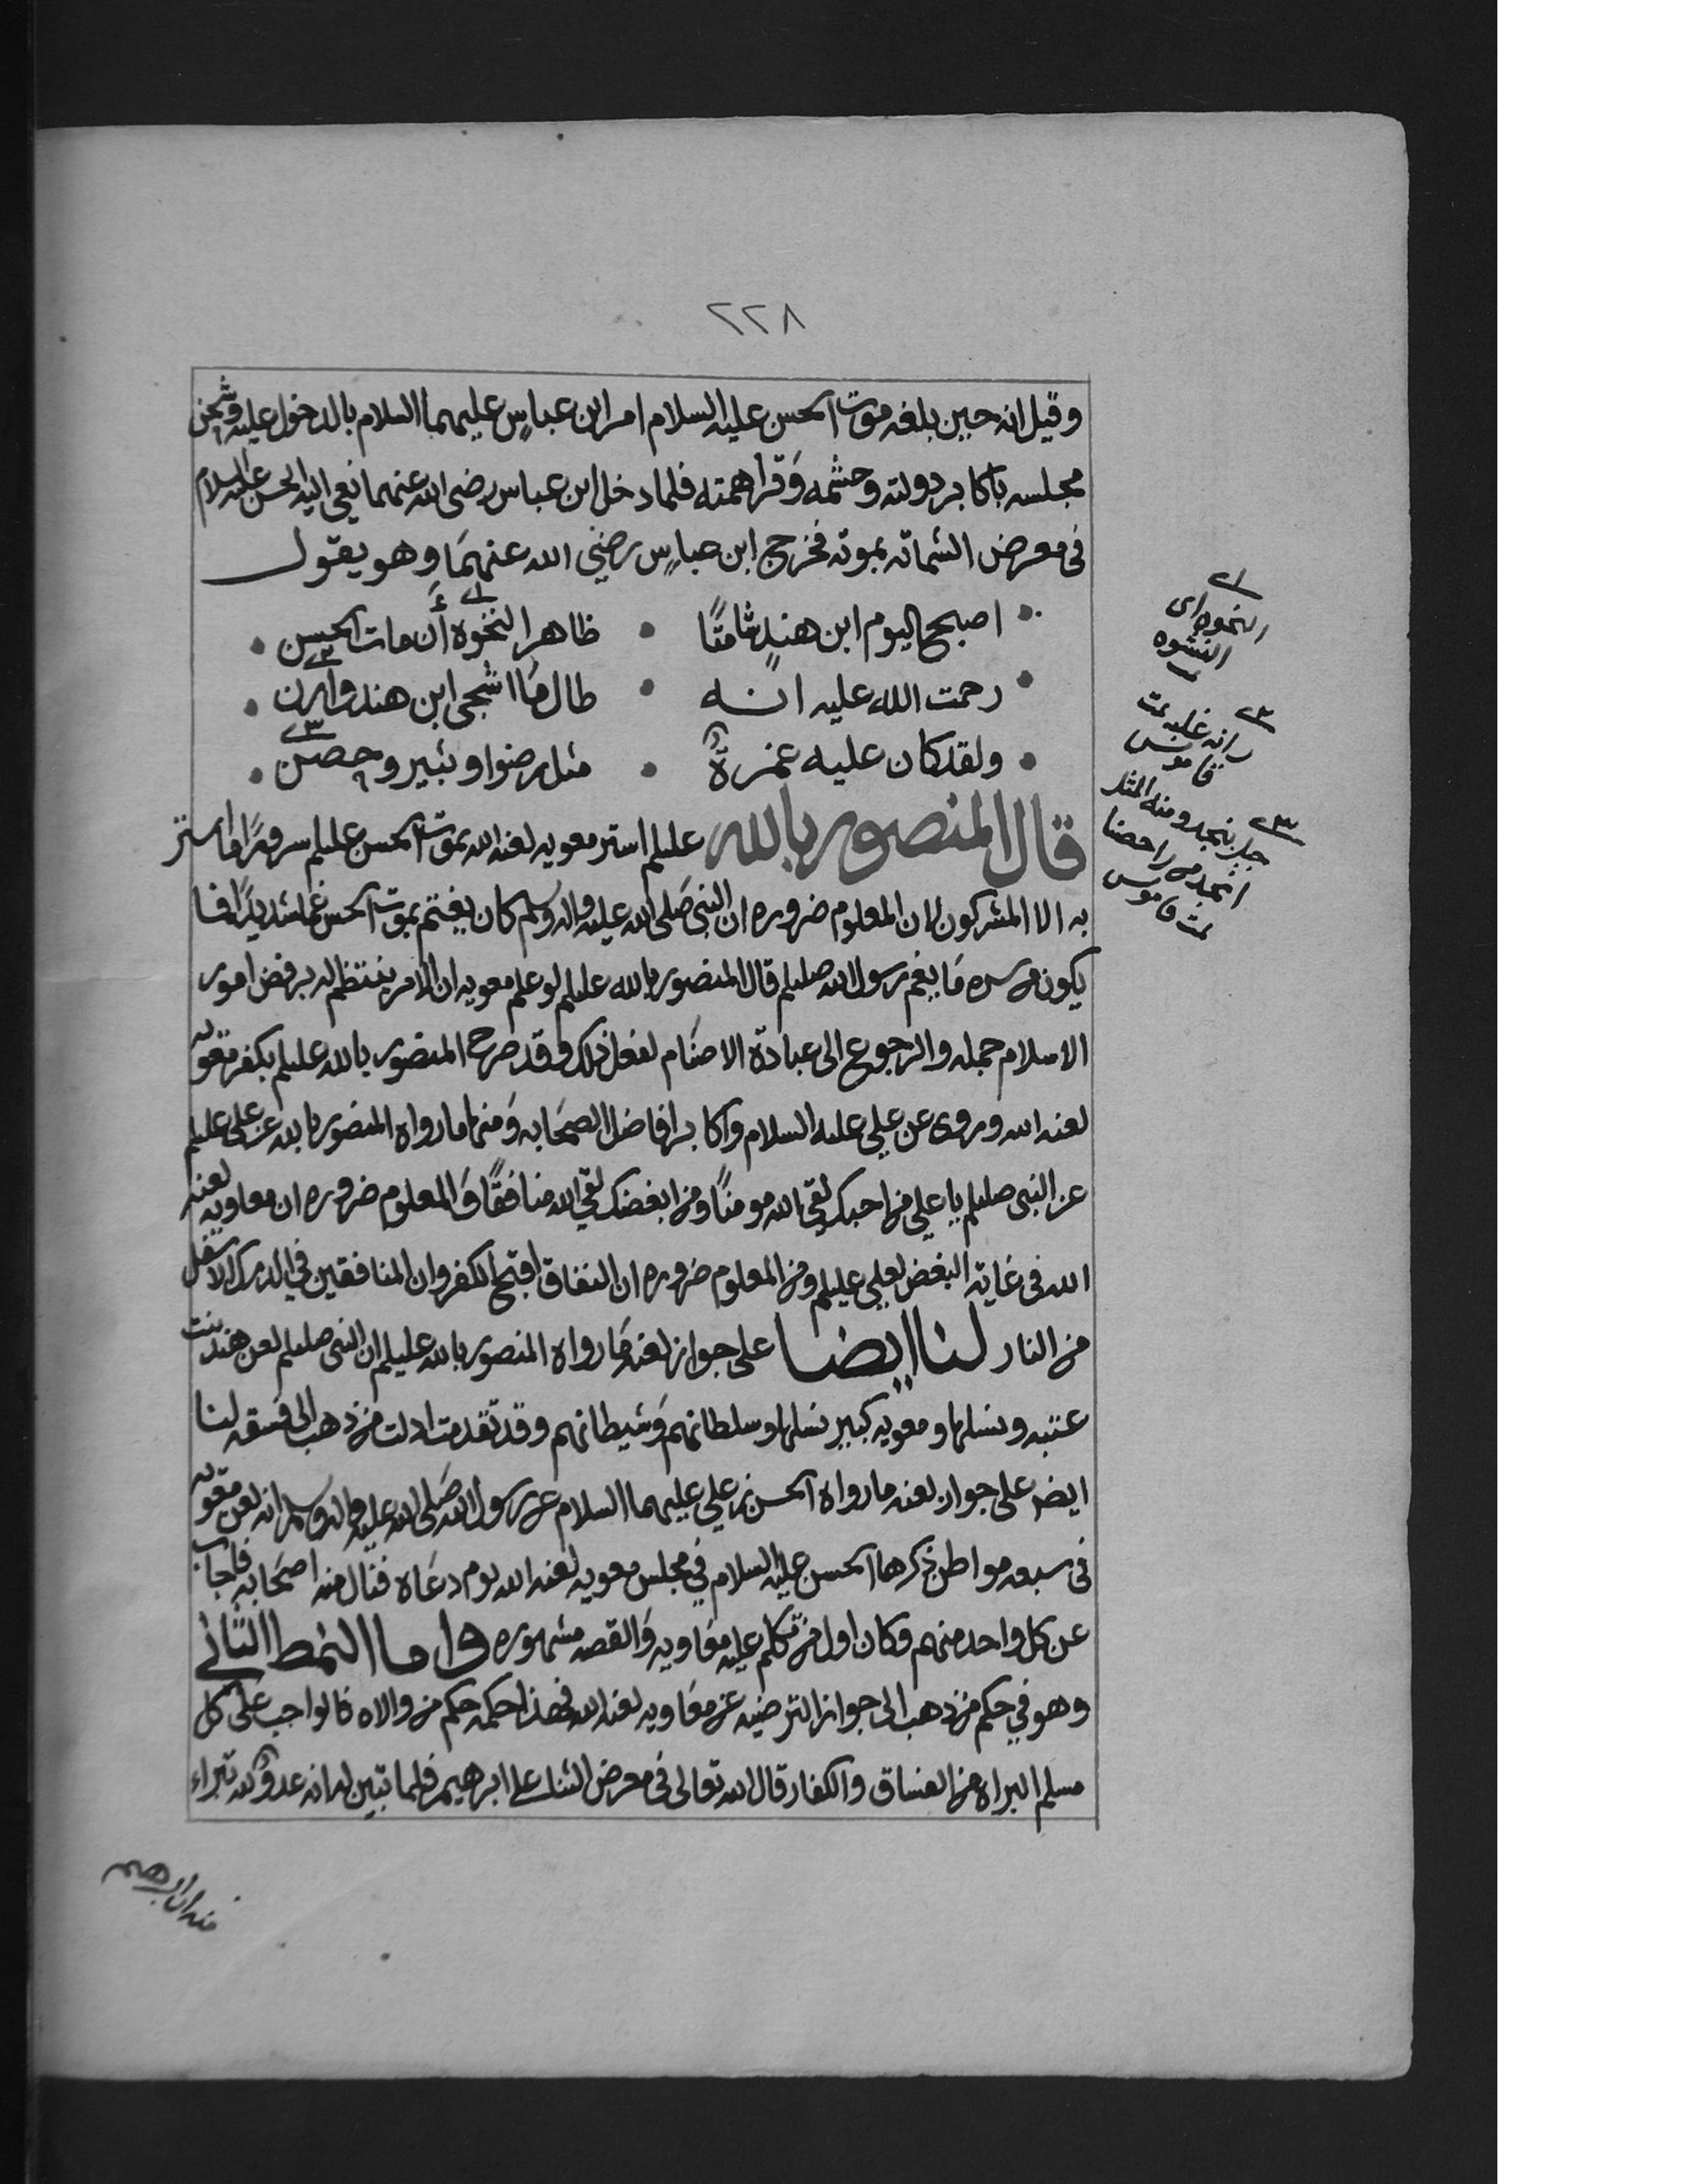 ٢٢٨
وقيل انه حين بلغه موت الحسن عليه السلام امر ابن عباس عليهما السلام بالدخول عليه وشحن
مجلسه باكابر دولته وحشمه وقرا همته فلما دخل ابن عباس رضى الله عنهما نعى اليه الحسن عليه السلام
فى معرض الشماته بموته فخرج ابن عباس رضي الله عنهما وهو يقول
اصبح اليوم ابن هندٍ شامتًا • ظاهر النخوة أن مات الحسن •
رحمت الله عليه انه • طال ما اشجى ابن هند وارن •
ولقد كان عليه غمرة • مثل رضوا وثبير وحضن •
قال المنصور بالله عليلم استر معويه لعنه الله بموت الحسن عليلم سرورًا ما استر
به الا المشركون لان المعلوم ضروره ان النبي صلى الله عليه واله وسلم كان يغتم بموت الحسن غما شديدًا فا
يكون من سره ما يغم رسول الله صلعلم قال المنصور بالله عليلم لو علم معويه ان الامر ينتظم له برفض امور
الاسلام جمله والرجوع الى عبادة الاصنام لفعل ذلك وقد صرح المنصور بالله عليلم بكفر معويه
لعنه الله وروى عن علي عليه السلام واكابر افاضل الصحابه ومنها ما رواه المنصور بالله عن علي عليلم
عن النبي صلعلم يا علي من احبك لقي الله مومنًا ومن ابغضك لقي الله منافقًا والمعلوم ضروره ان معاويه لعنه
الله فى غاية البغض لعلي عليلم ومن المعلوم ضروره ان النفاق اقبح الكفر وان المنافقين في الدرك الاسفل
من النار لنا ايضا على جواز لعنه ما رواه المنصور بالله عليلم ان النبي صلعلم لعن هند بنت
عتبه ونسلها ومعويه كبير نسلها وسلطانهم وشيطانهم وقد تقدمت ادلت من ذهب الى فسقه لنا
ايض على جواز لعنه ما رواه الحسن بن علي عليهما السلام عن رسول الله صلى الله عليه واله وسلم انه لعن معويه
فى سبعه مواطن ذكرها الحسن عليه السلام في مجلس معويه لعنه الله يوم دعاه فنال منه اصحابه فاجاب
عن كل واحد منهم وكان اول من تكلم عليه معاويه والقصه مشهوره واما النمط الثاني
وهو في حكم من ذهب الى جواز الترضيه عن معاويه لعنه الله فهذا حكمه حكم من والاه فالواجب على كل
مسلم البراه من الفساق والكفار قال الله تعالى فى معرض الثناء على ابرهيم فلما تبين له انه عدو لله تبراء
منه ان ابرهيم
النخوه اى
النشوه
رانه غلبه تمت
قاموس
جبل بنجد ومنه المثل
انجد من راحضنا
تمت قاموس